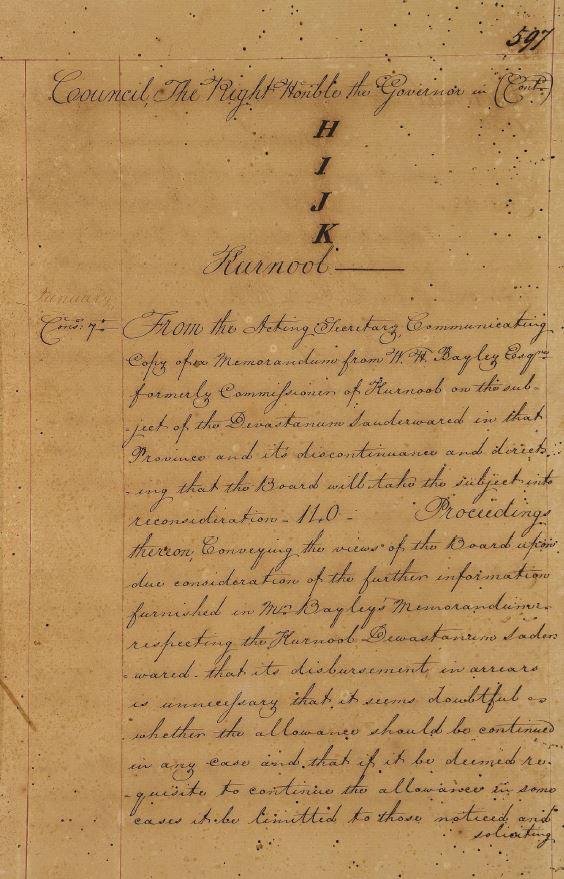 597
Council, The Right Honble the Governor in (Cont.)
H
I
J
K
Kurnool
January
Cons: 7th
From the Acting Secretary, Communicating
Copy of a Memorandum from W. H. Bayley Esqre
formerly Commissioner of Kurnool on the sub-
-ject of the Devastanum Sauderwared in that
Province and its discontinuance and direct-
-ing that the Board will take the subject into
reconsideration - 110 - Proceedings
thereon, Conveying the views of the Board upon
due consideration of the further information
furnished in Mr. Bayley's Memorandum
respecting the Kurnool Dewastanum Sader-
-wared that its disbursement in arrears
is unnecessary that it seems doubtful
whether the allowance should be continued
in any case and that if it be deemed re-
-quisite to continue the allowance in some
cases it be limitted to those noticed and
soliciting